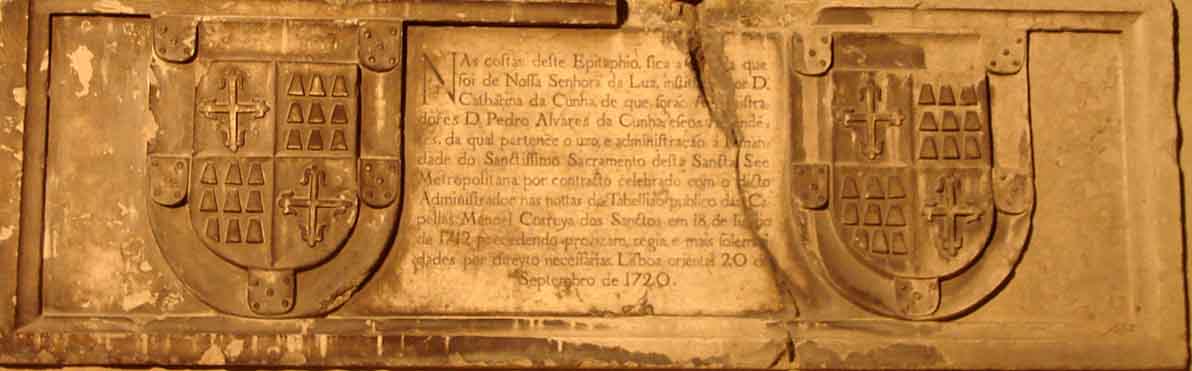 NAs costas deste Epitaphio, fica a que
foi de Nossa Senhora da Luz, instit por D.
Catharina da Cunha, de que forão A nistra-
dores D. Pedro Alvares da Cunha, e seos cende-
tes, da qual pertence o uzo, e administração á Irman-
dade do Sanctissimo Sacramento desta Sancta See
Metropolitana por contracto celebrado com o dicto
Administrador nas nottas do Tabelliao publico das Ca-
pellas Manoel Correya dos Sanctos em 18. de
de 1712 precedendo provizam regia, e mais solemni-
dades por direyto necessarias. Lisboa oriental 20 d
Septembro de 1720.